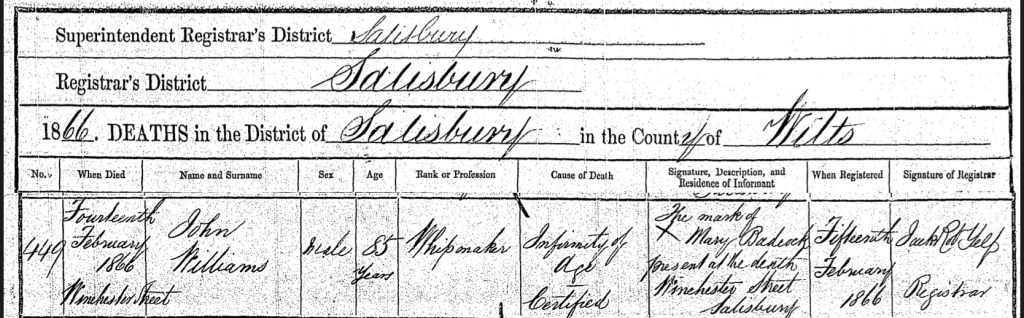 Superintendent Registrar's District Salisbury
Registrar's District Salisbury
1866. DEATHS in the District of Salisbury in the County of Wilts
No. When Died Name and Surname Sex Age Rank or Profession Cause of Death Signature, Description, and Residence of Informant When Registered Signature of Registrar
449
Fourteenth
February
1866
Winchester Street
John
Williams
Male
85
Years
Whipmaker
Infirmity of
Age
Certified
The mark of
X Mary Badcock
present at the death
Winchester Street
Salisbury
Fifteenth
February
1866
Registrar